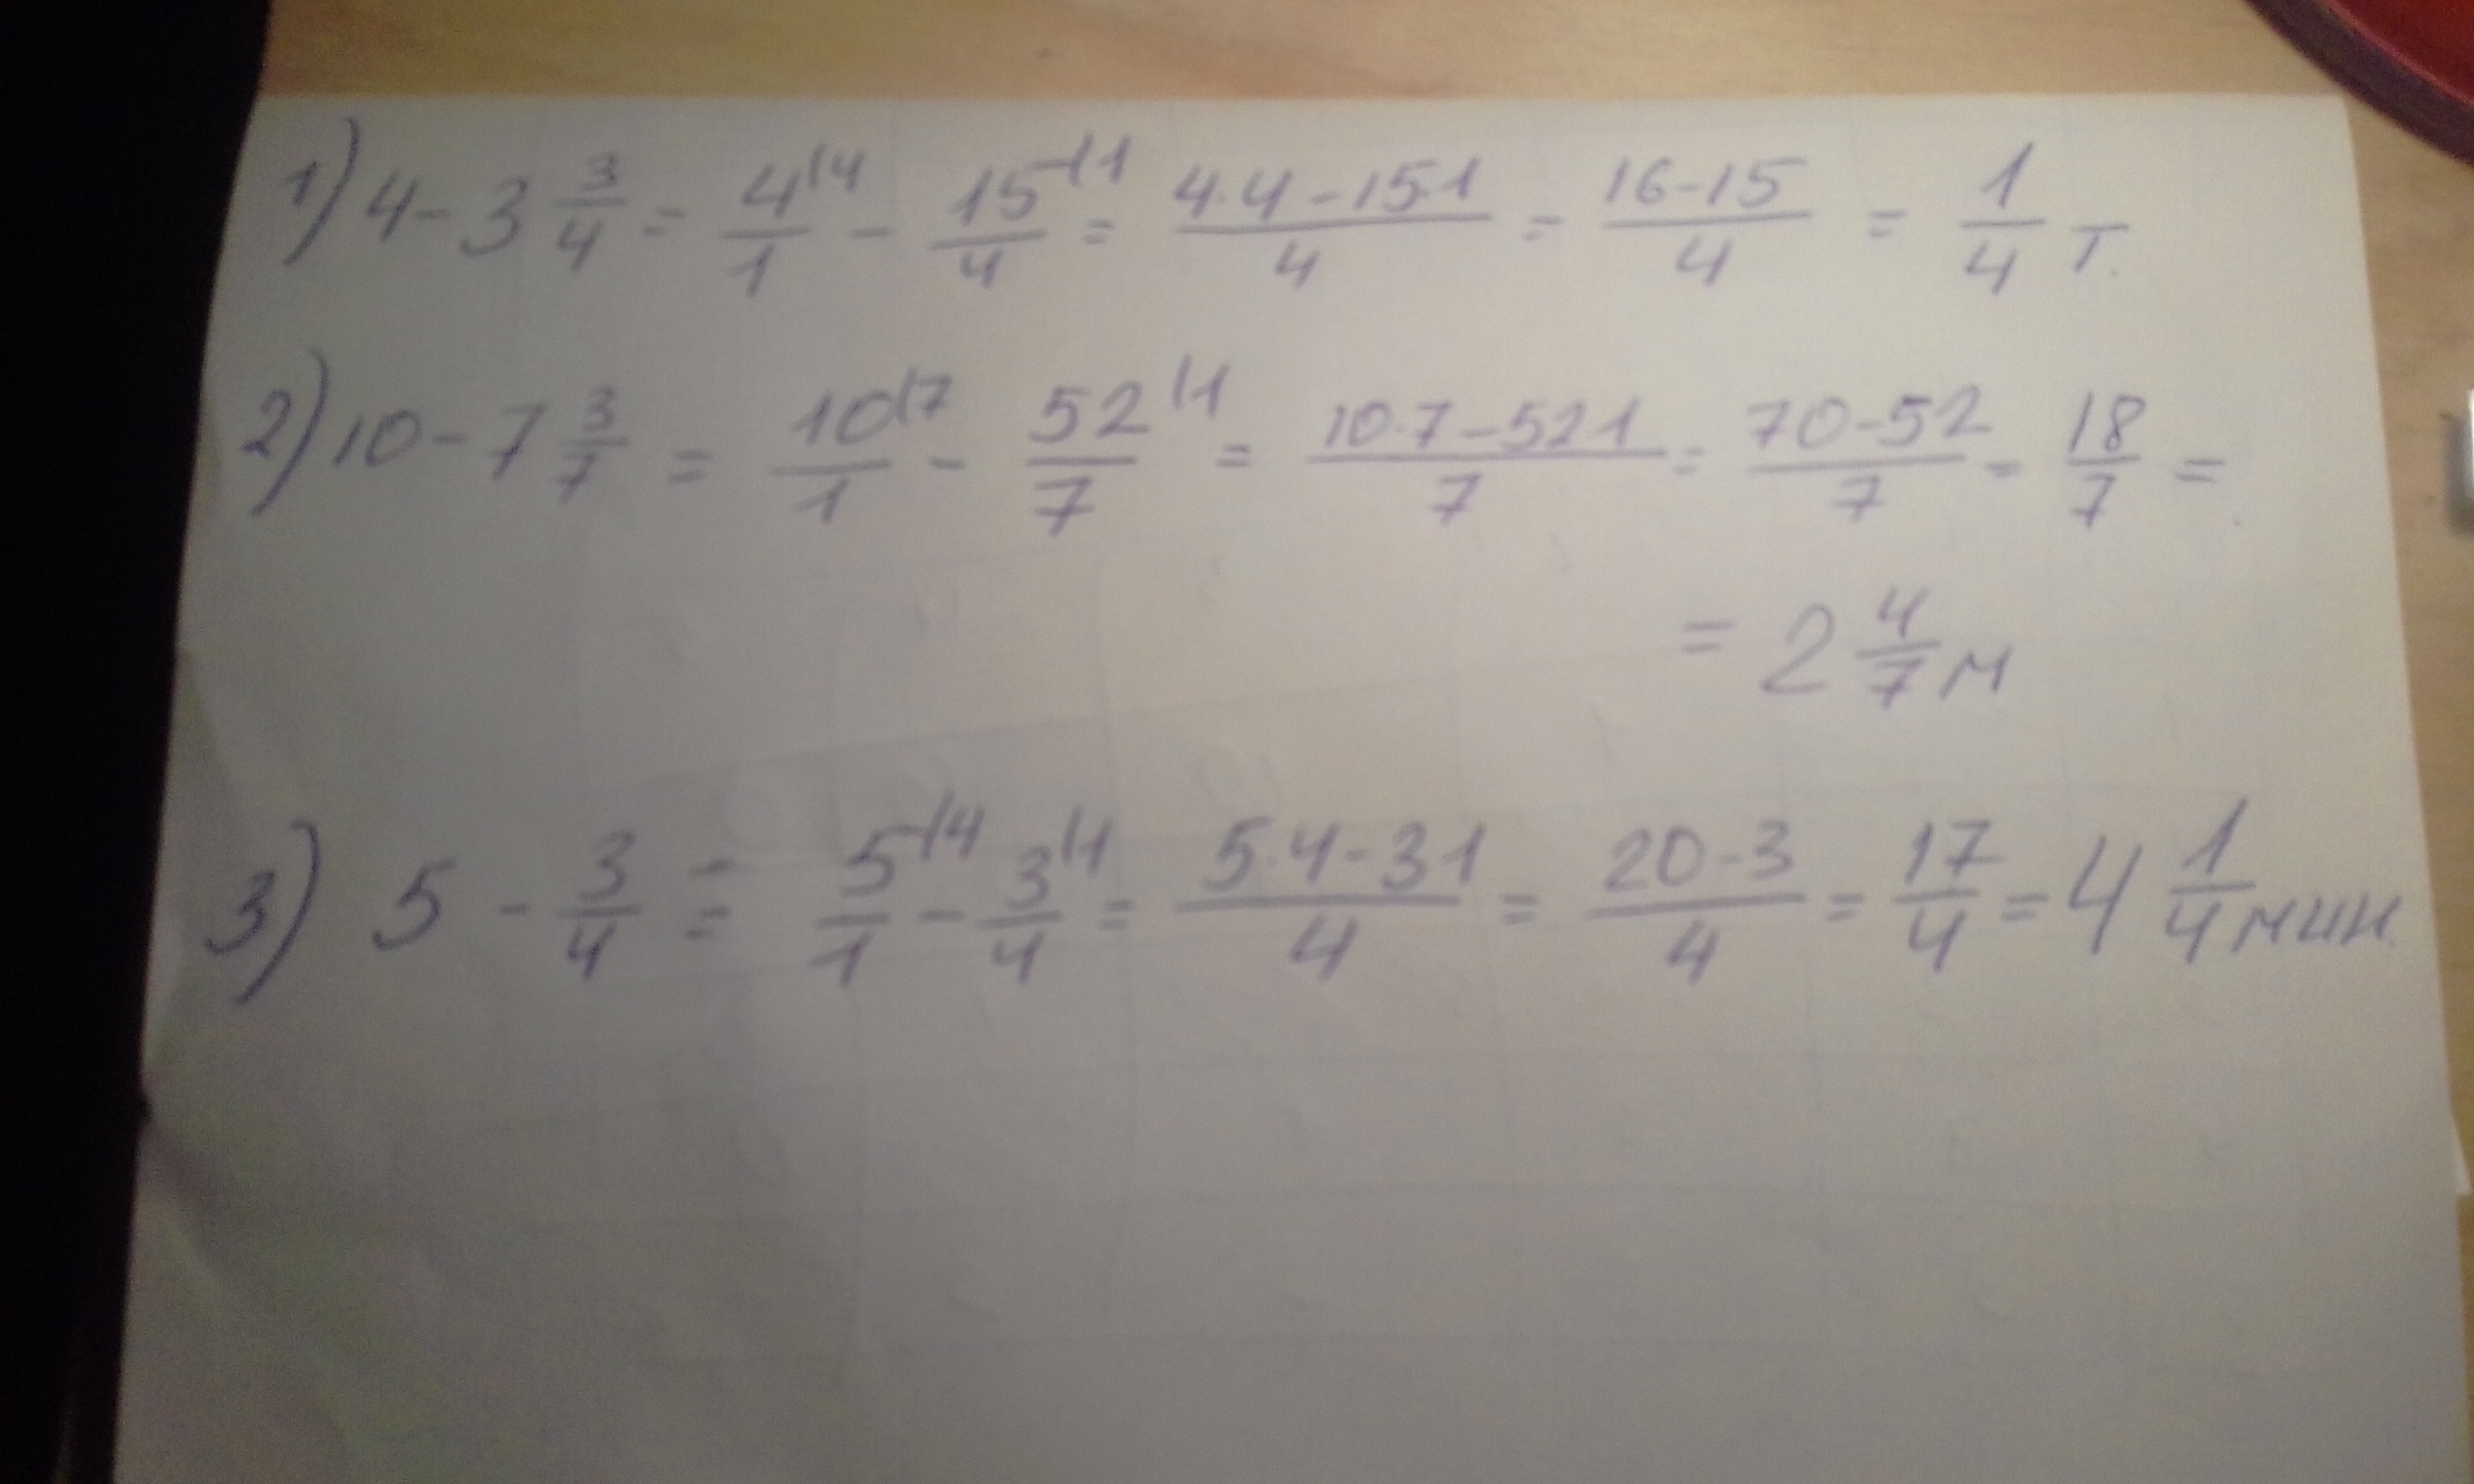 1) 4 - 3 3/4 = 4\4/1 - 15\1/4 = 4·4-15·1/4 = 16-15/4 = 1/4 т.
2) 10 - 7 3/7 = 10\7/1 - 52\1/7 = 10·7-52·1/7 = 70-52/7 = 18/7 =
= 2 4/7 м
3) 5 - 3/4 = 5\4/1 - 3\1/4 = 5·4-3·1/4 = 20-3/4 = 17/4 = 4 1/4 мин.